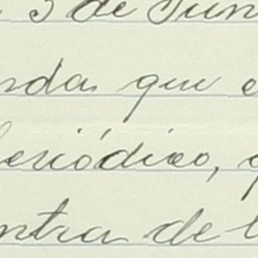 3 de Jun
nda que e
periódico, q
ntra de l